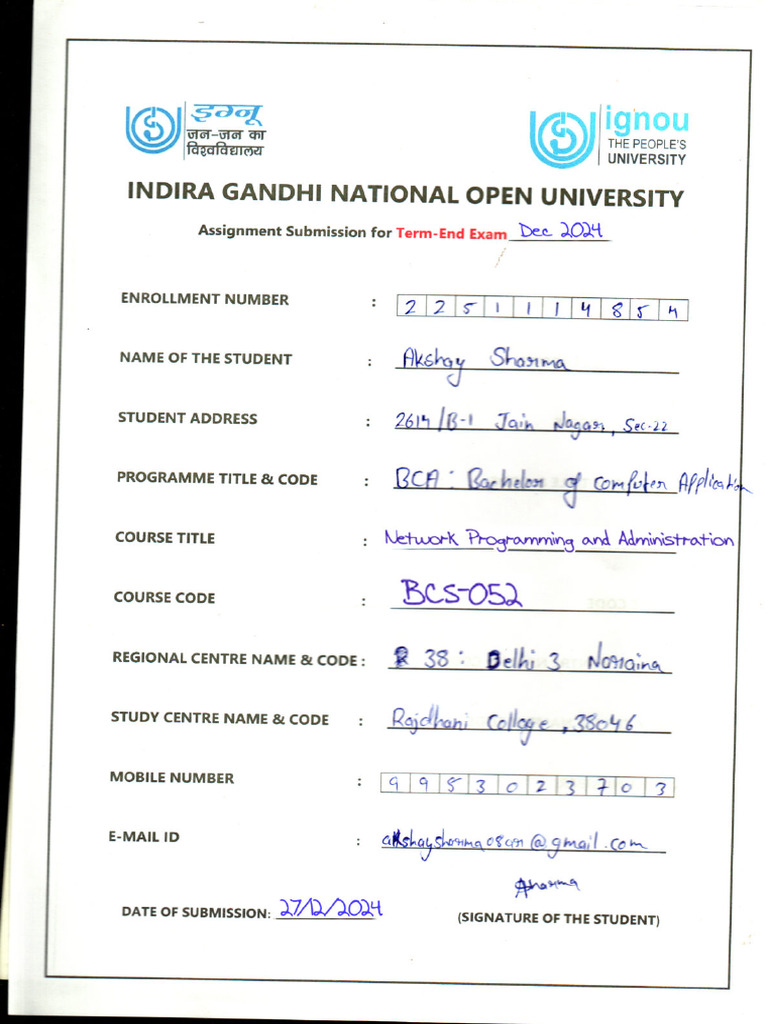 इग्नू
जन-जन का
विश्वविद्यालय
ignou
THE PEOPLE'S
UNIVERSITY
INDIRA GANDHI NATIONAL OPEN UNIVERSITY
Assignment Submission for Term-End Exam Dec 2024
ENROLLMENT NUMBER : 2251114854
NAME OF THE STUDENT : Akshay Sharma
STUDENT ADDRESS : 2614/B-1 Jain Nagar, Sec-22
PROGRAMME TITLE & CODE : BCA : Bachelor of Computer Application
COURSE TITLE : Network Programming and Administration
COURSE CODE : BCS-052
REGIONAL CENTRE NAME & CODE : 38 : Delhi 3 Naraina
STUDY CENTRE NAME & CODE : Rajdhani College, 38046
MOBILE NUMBER : 9953023703
E-MAIL ID :
Sharma
DATE OF SUBMISSION: 27/12/2024 (SIGNATURE OF THE STUDENT)